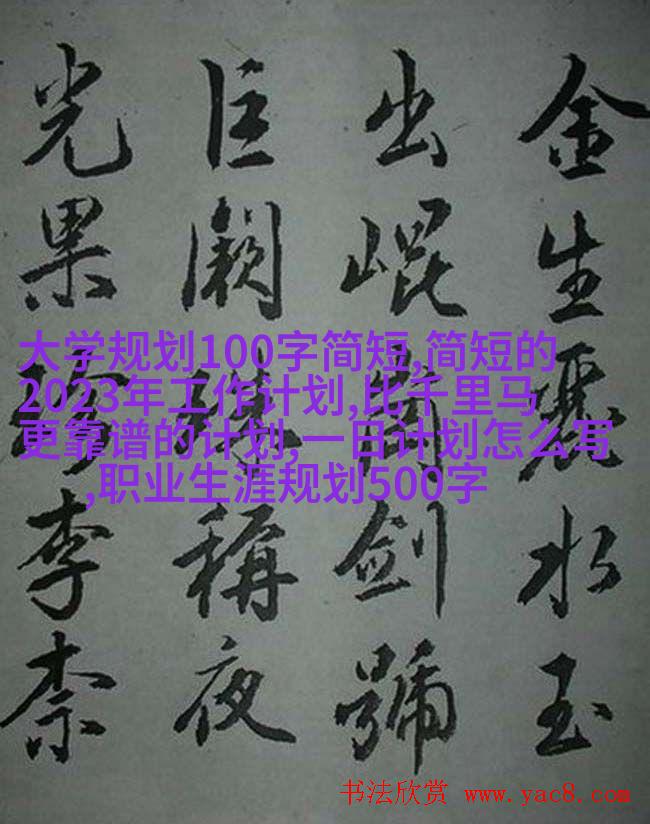 金生麗水玉
出崐岡劍號
巨闕珠稱夜
光果珍李柰
大学规划100字简短,简短的
2023年工作计划,比千里马
更靠谱的计划,一日计划怎么写
,职业生涯规划500字
书法欣赏 www.yac8.com